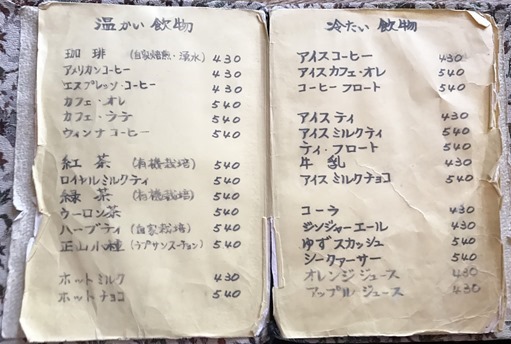 温かい飲物
珈琲 (自家焙煎・湧水) 430
アメリカンコーヒー 430
エスプレッソ・コーヒー 430
カフェ・オレ 540
カフェ・ラテ 540
ウィンナコーヒー 540
紅茶 (有機栽培) 540
ロイヤルミルクティ 540
緑茶 (有機栽培) 540
ウーロン茶 540
ハーブティ (自家栽培) 540
正山小種 (ラプサンスーチョン) 540
ホットミルク 430
ホットチョコ 540
冷たい飲物
アイスコーヒー 430
アイスカフェ・オレ 540
コーヒーフロート 540
アイスティ 430
アイスミルクティ 540
ティ・フロート 540
牛乳 430
アイスミルクチョコ 540
コーラ 430
ジンジャーエール 430
ゆずスカッシュ 540
シークァーサー 540
オレンジジュース 430
アップルジュース 430